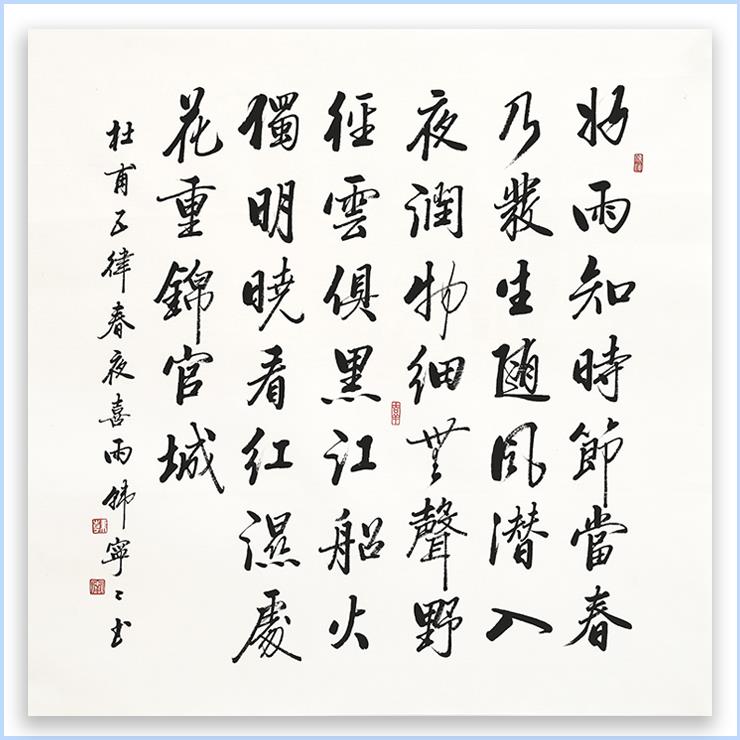 好雨知時節當春
乃發生隨風潜入
夜潤物細無聲野
徑雲俱黑江船火
獨明曉看紅濕處
花重錦官城
杜甫五律春夜喜雨韩寧〻书